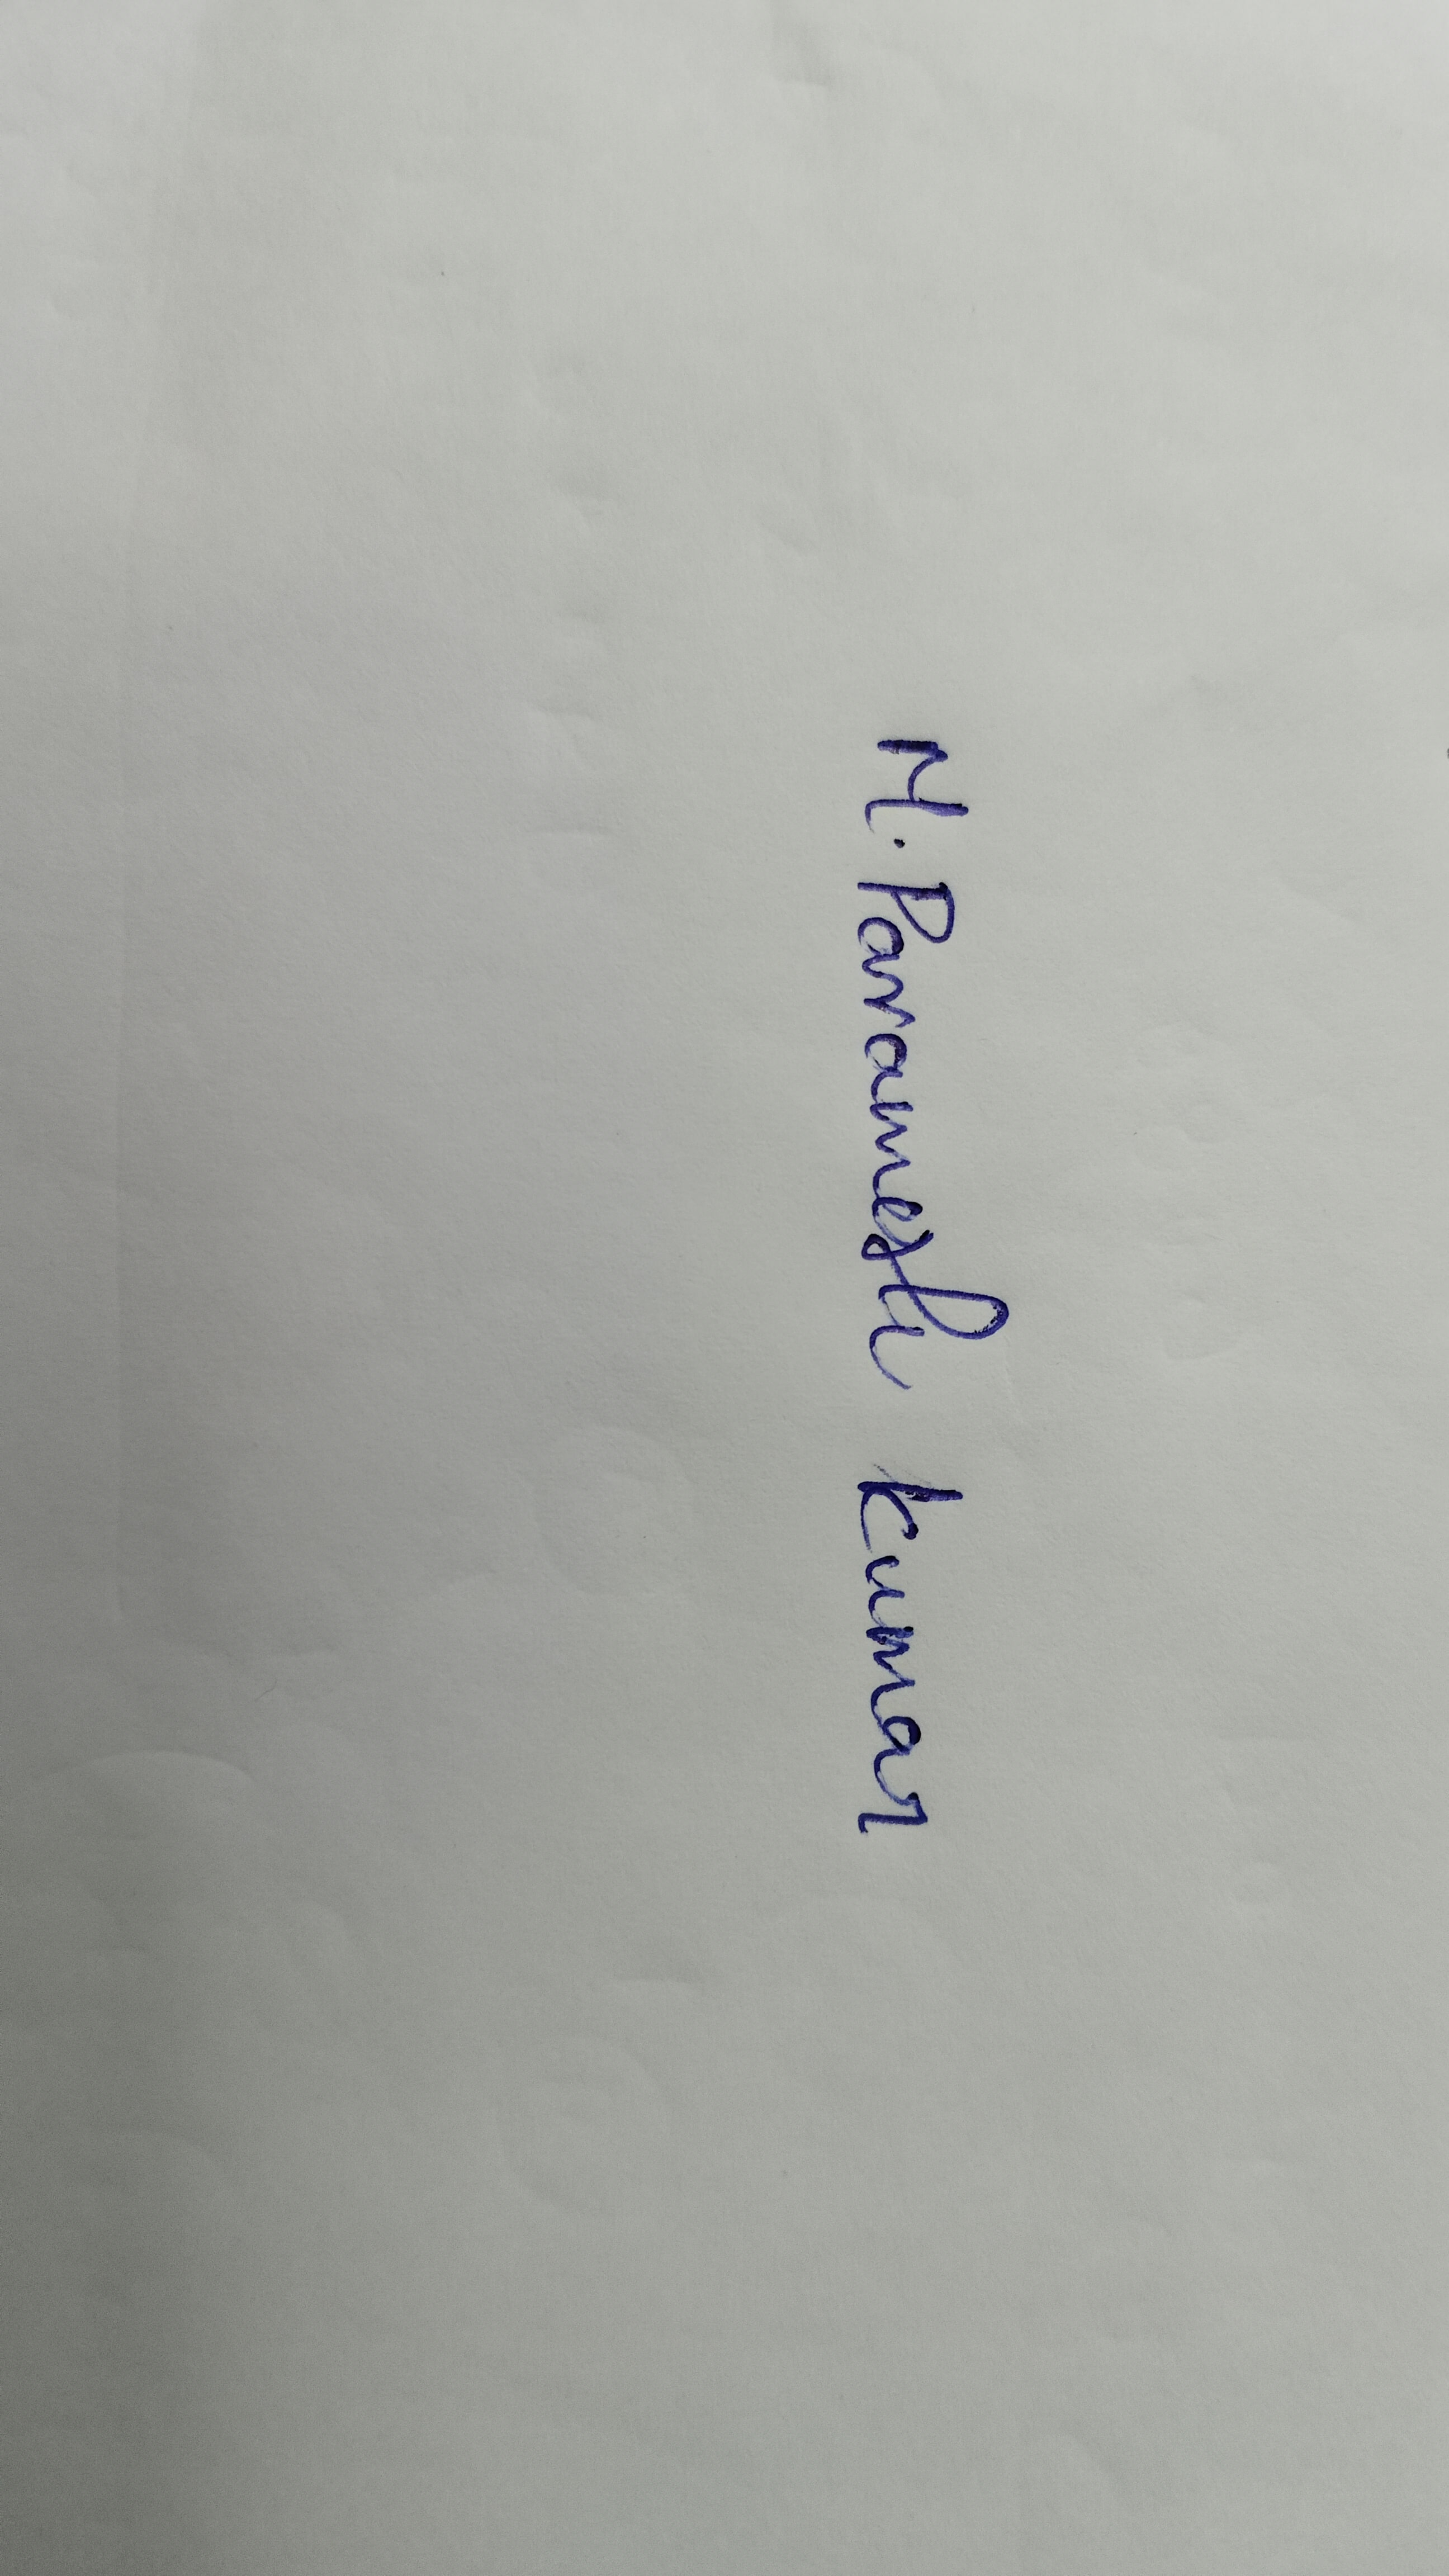 M. Paramesh kumar